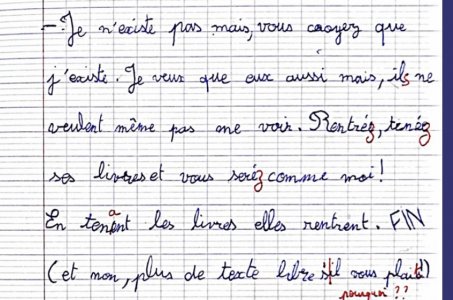 - Je n'existe pas mais, vous croyez que
j'existe. Je veux que eux aussi mais, ils ne
veulent même pas me voir. Rentréz, tenéz
ses livres et vous seréz comme moi!
En tenant les livres elles rentrent. FIN
(et non, plus de texte libre s'il vous plait)
pourquoi ??